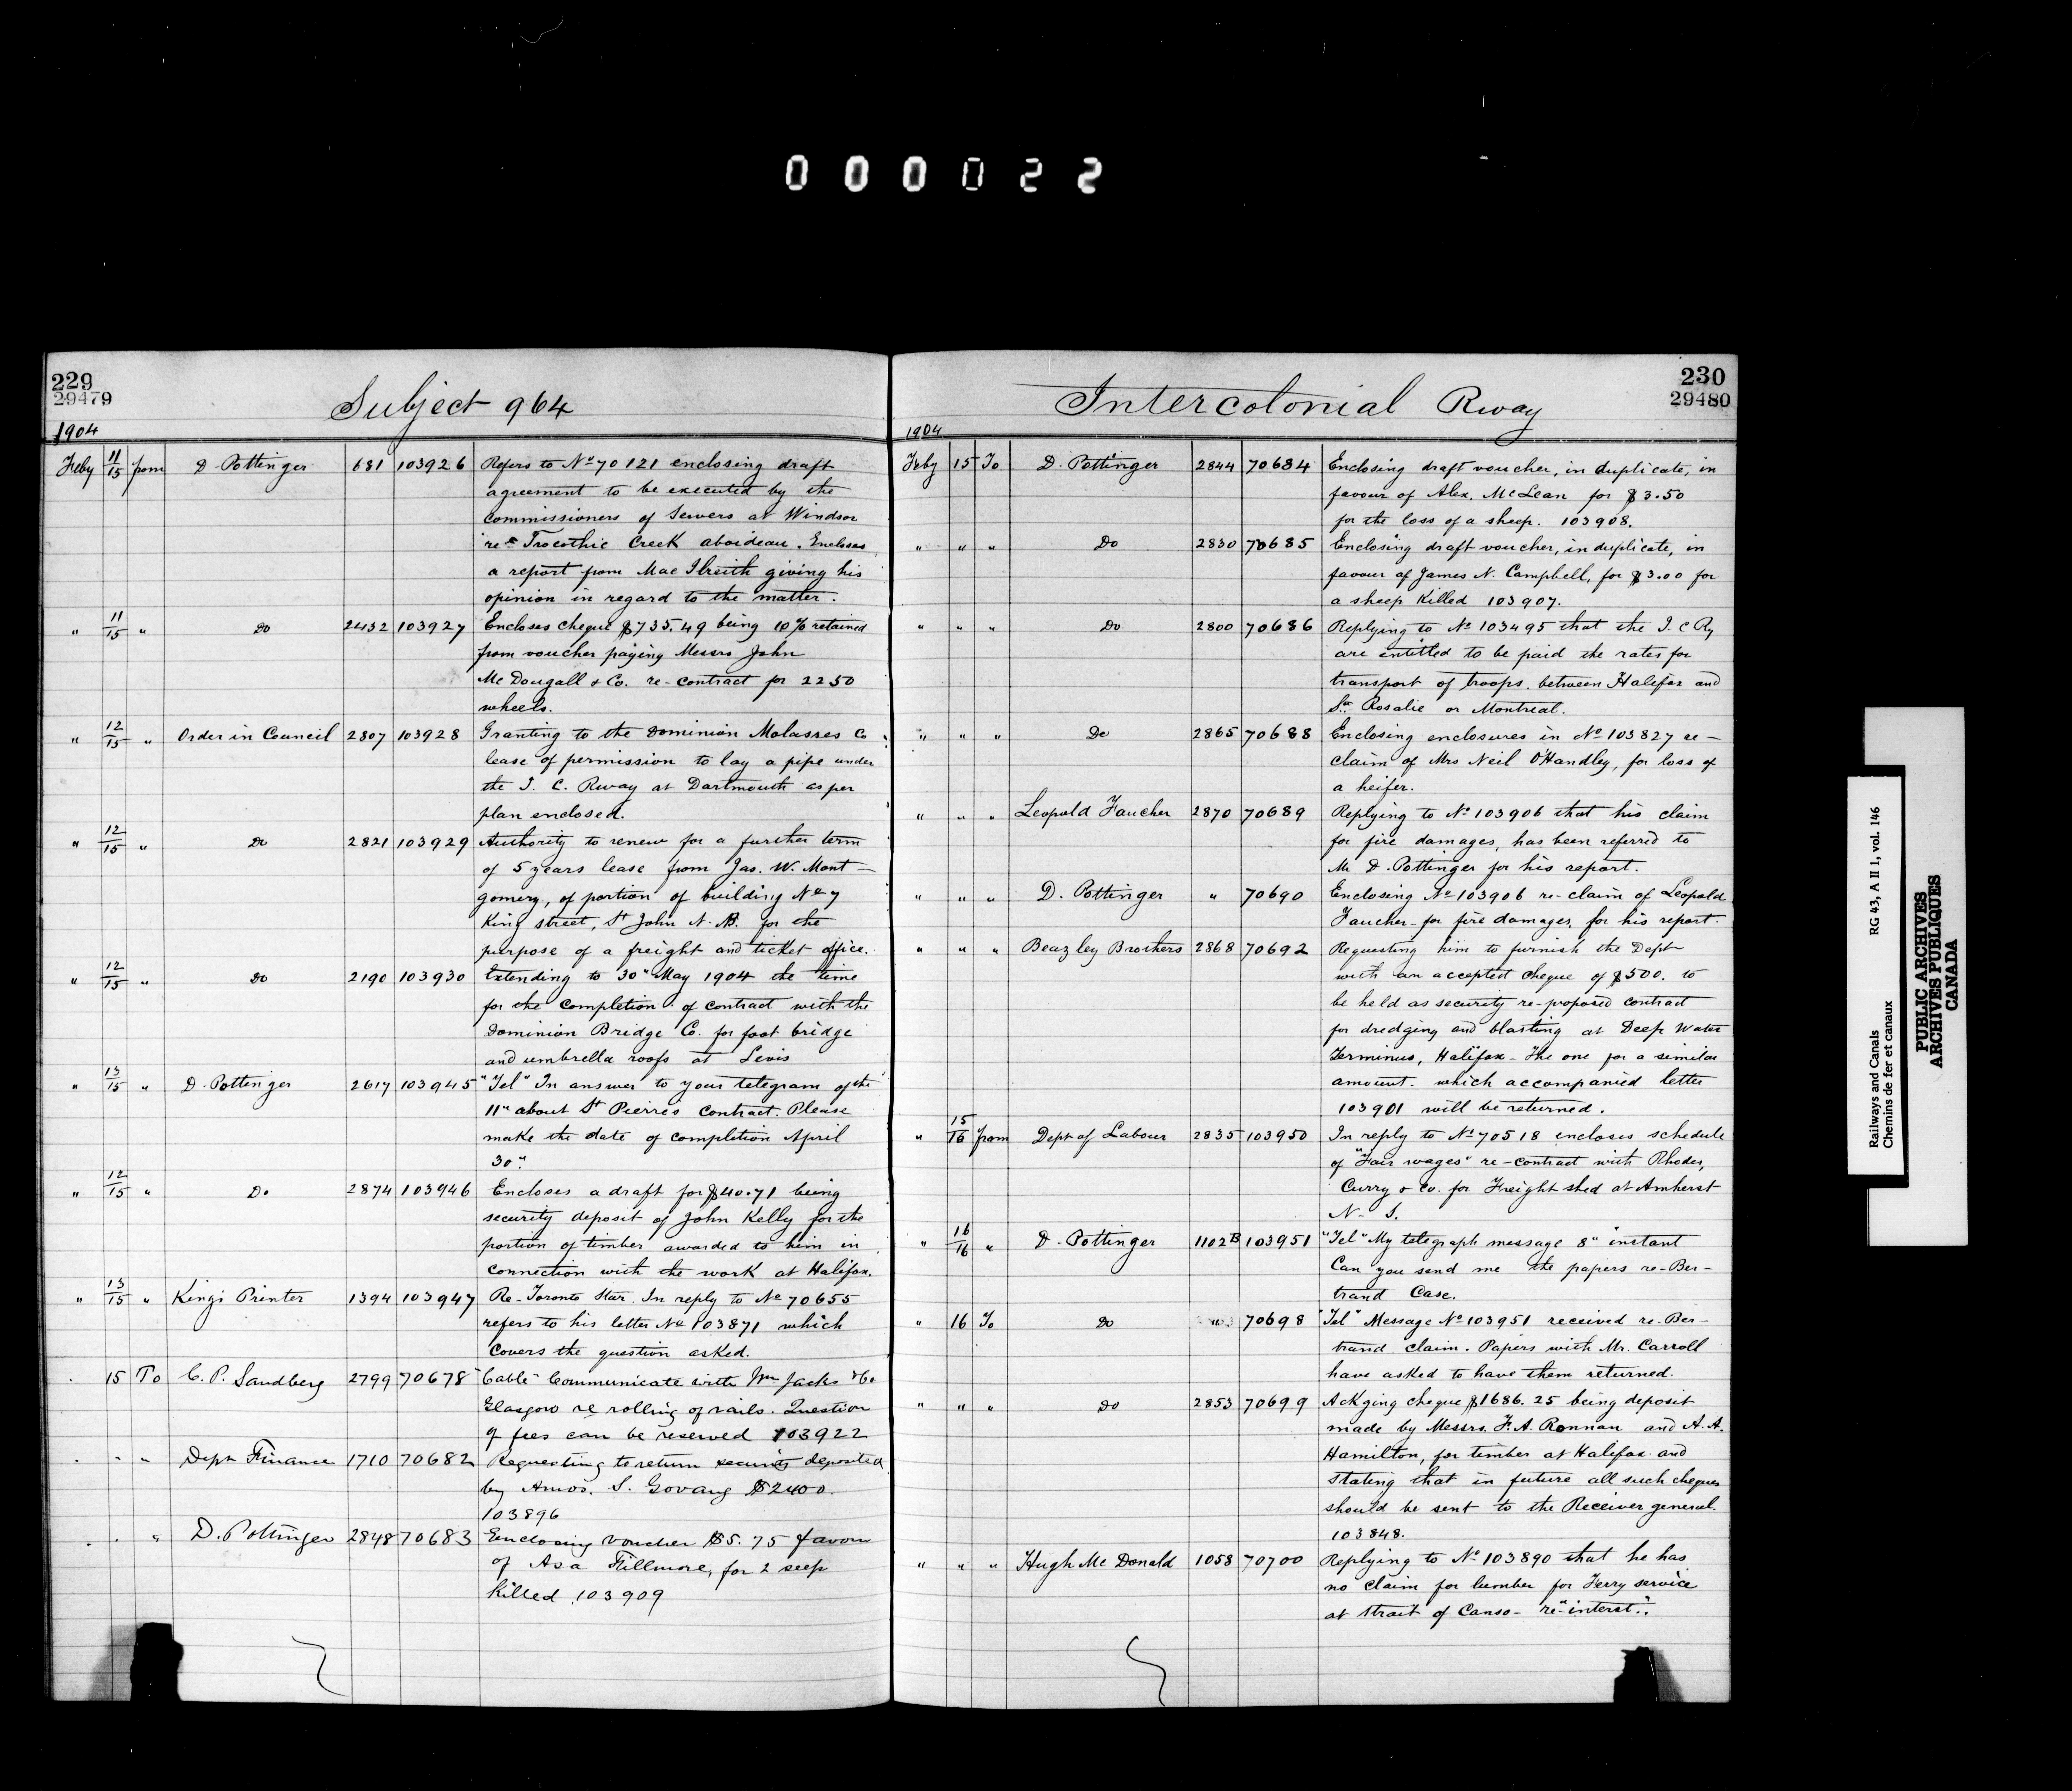 000022
229
29479
Subject 964
1904
Feby 11/15 from D. Pottinger 681 103926 Refers to No 70121 enclosing draft
agreement to be executed by the
Commissioners of Sewers at Windsor
re- Trecothic Creek aboideau. Encloses
a report from Mac Ilreith giving his
opinion in regard to the matter.
" 11/15 " Do 2432 103927 Encloses cheque $735.49 being 10% retained
from voucher paying Messrs John
McDougall & Co. re-contract for 2250
wheels.
" 12/15 " Order in Council 2807 103928 Granting to the Dominion Molasses Co
lease of permission to lay a pipe under
the I. C. Rway at Dartmouth as per
plan enclosed.
" 12/15 " Do 2821 103929 Authority to renew for a further term
of 5 years lease from Jas. W. Mont-
gomery, of portion of building No 7
King street, St John N.B. for the
purpose of a freight and ticket office.
" 12/15 " Do 2190 103930 Extending to 30" May 1904 the time
for the completion of contract with the
Dominion Bridge Co. for foot bridge
and umbrella roofs at Levis
" 13/15 " D. Pottinger 2617 103945 "Tel" In answer to your telegram of the
11" about St Pierre's contract. Please
make the date of completion April
30".
" 12/15 " Do 2874 103946 Encloses a draft for $40.71 being
security deposit of John Kelly for the
portion of timber awarded to him in
connection with the work at Halifax.
" 13/15 " King's Printer 1394 103947 Re-Toronto Star. In reply to No 70655
refers to his letter No 103871 which
Covers the question asked.
" 15 To C. P. Sandberg 2799 70678 "Cable" Communicate with Wm Jacks & Co
Glasgow re rolling of rails. Question
of fees can be reserved 103922
" " " Dept Finance 1710 70682 Requesting to return security deposited
by Amos. S. $2400.
103896
" " " D. Pottinger 2848 70683 Enclosing voucher $5.75 favour
of Asa Fillmore, for 2 seep
Killed 103909
230
29480
Intercolonial Rway
1904
Feby 15 To D. Pottinger 2844 70684 Enclosing draft voucher, in duplicate, in
favour of Alex. McLean for $3.50
for the loss of a sheep. 103908.
" " " Do 2830 70685 Enclosing draft voucher, in duplicate, in
favour of James N. Campbell, for $3.00 for
a sheep Killed 103907.
" " " Do 2800 70686 Replying to No 103495 that the I. C Ry
are entitled to be paid the rates for
transport of troops. between Halifax and
Ste Rosalie or Montreal.
" " " Do 2865 70688 Enclosing enclosures in No 103827 re-
claim of Mrs Neil O'Handley, for loss of
a heifer.
" " " Leopold Faucher 2870 70689 Replying to No 103906 that his claim
for fire damages, has been referred to
Mr D. Pottinger for his report.
" " " D. Pottinger " 70690 Enclosing No 103906 re-claim of Leopold
Faucher for fire damages, for his report.
" " " Beazley Brothers 2868 70692 Requesting him to furnish the Dept
with an accepted cheque of $500. to
be held as security re-proposed contract
for dredging and blasting at Deep Water
Terminus, Halifax - The one for a similar
amount. which accompanied letter
103901 will be returned.
" 15/16 from Dept of Labour 2835 103950 In reply to No 70518 encloses schedule
of "Fair wages" re-contract with Rhodes,
Curry & Co. for Freight shed at Amherst
N. S.
" 16/16 " D. Pottinger 1102B 103951 "Tel" My telegraph message 8" instant
Can you send me the papers re-Ber-
trand Case.
" 16 To Do " 70698 "Tel" Message No 103951 received re-Ber-
trand claim. Papers with Mr. Carroll
have asked to have them returned.
" " " Do 2853 70699 Ackging cheque $1686.25 being deposit
made by Messrs. F. A. Ronnan and A. A.
Hamilton, for timber at Halifax and
stating that in future all such cheques
should be sent to the Receiver general.
103848.
" " " Hugh McDonald 1058 70700 Replying to No 103890 that he has
no claim for lumber for Ferry service
at Strait of Canso- re-"interst".
Railways and Canals RG 43, A II 1, vol. 146
Chemins de fer et canaux
PUBLIC ARCHIVES
ARCHIVES PUBLIQUES
CANADA